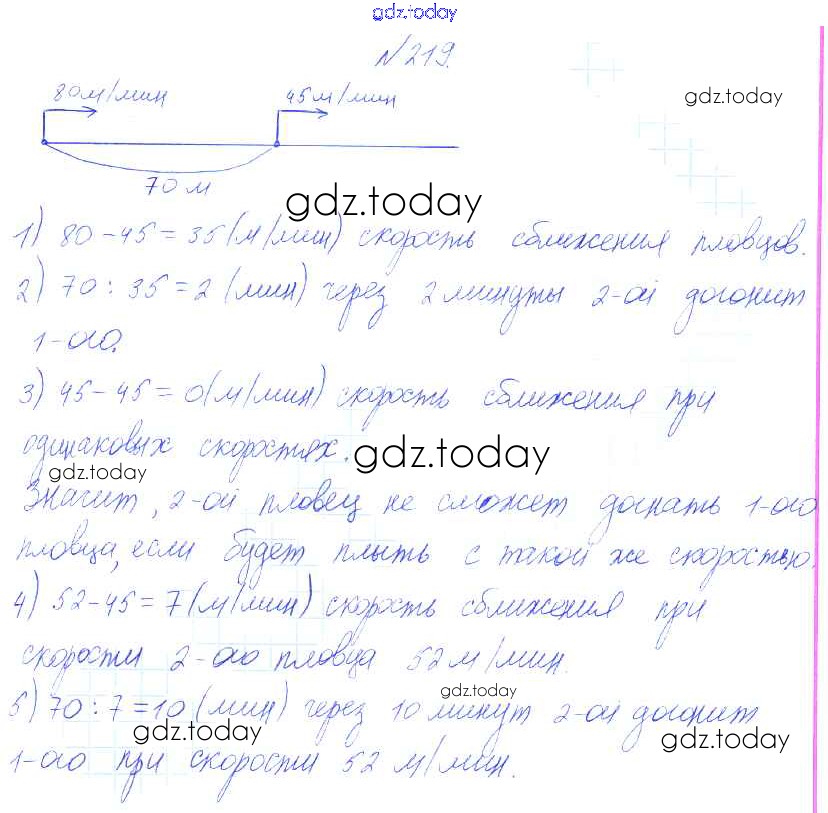 gdz.today
№219.
80м/мин 45м/мин
gdz.today
70 м
gdz.today
1) 80-45=35(м/мин) скорость сближения пловцов.
2) 70:35=2 (мин) через 2 минуты 2-ой догонит
1-ого.
3) 45-45=0(м/мин) скорость сближения при
одинаковых скоростях.
gdz.today
gdz.today
Значит, 2-ой пловец не сможет догнать 1-ого
пловца, если будет плыть с такой же скоростью.
4) 52-45=7(м/мин) скорость сближения при
скорости 2-ого пловца 52м/мин.
gdz.today
5) 70:7=10 (мин) через 10 минут 2-ой догонит
gdz.today
gdz.today
1-ого при скорости 52 м/мин.